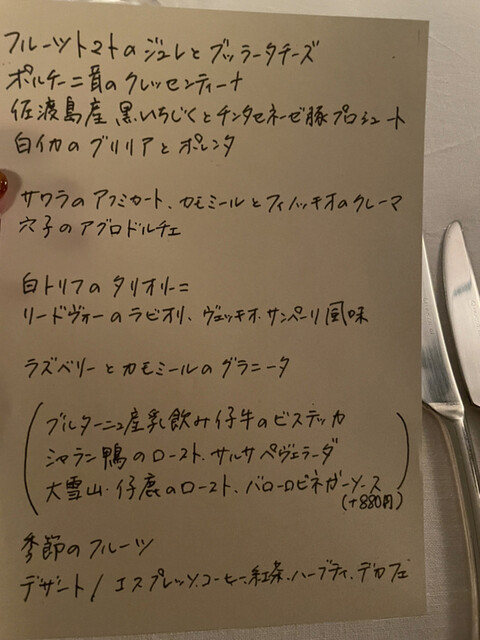 フルーツトマトのジュレとブッラータチーズ
ポルチーニ茸のクレッセンティーナ
佐渡島産 黒いちじくとチンタセネーゼ豚プロシュート
白イカのブリリアとポレンタ
サワラのアフミカート、カモミールとフィノッキオのクレーマ
穴子のアグロドルチェ
白トリフのタリオリーニ
リードヴォーのラビオリ、ヴェッキオ・サンペーリ風味
ラズベリーとカモミールのグラニータ
ブルターニュ産乳飲み仔牛のビステッカ
シャラン鴨のロースト、サルサペヴェラーダ
大雪山・仔鹿のロースト、バローロビネガーソース
(+880円)
季節のフルーツ
デザート/エスプレッソ、コーヒー、紅茶、ハーブティ、デカフェ